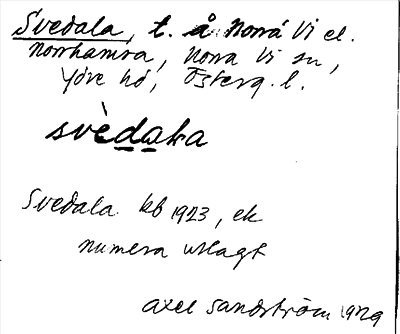 Svedala, t. å Norra Vi el.
Norrhamra, Norra Vi sn,
Ydre hd, Österg. l.
svèdaka
Svedala kb 1923, ek
numera utlagt
Axel Sandström 1929